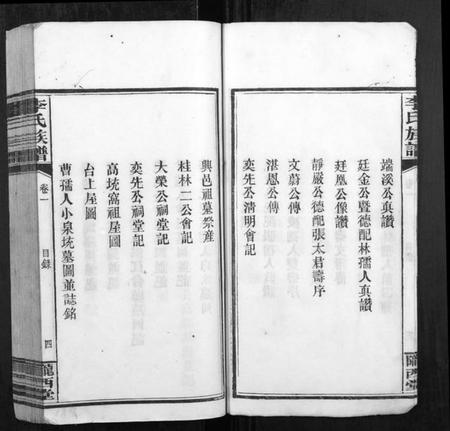 李氏族譜
端溪公真讚
廷金公暨德配林孺人真讚
廷凰公像讚
靜嚴公德配張太君壽序
文蔚公傳
湛恩公傳
奕先公清明會記
隴西堂
興邑祖墓祭產
桂林二公會記
大榮公祠堂記
奕先公祠堂記
高坑窩祖屋圖
台上屋圖
曹孺人小泉坑墓圖並誌銘
李氏族譜
卷一
目錄
四
隴西堂